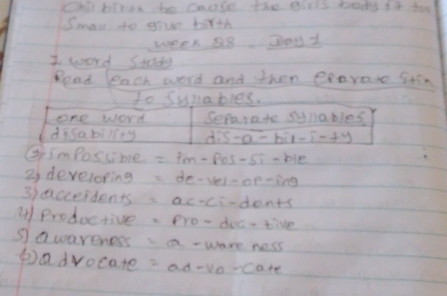 Child birth be cause the girls body is too
Small to give birth
Week 28 Day 1
I word Study
Read each word and then separate
to Syllables.
one word | Separate Syllables
disability | dis-a-bil-i-ty
1) impossible = im-pos-si-ble
2) developing = de-vel-op-ing
3) acceidents = ac-ci-dents
4) Prodoctive = Pro-doc-tive
5) awareness = a-ware ness
6) advocate = ad-vo-cate